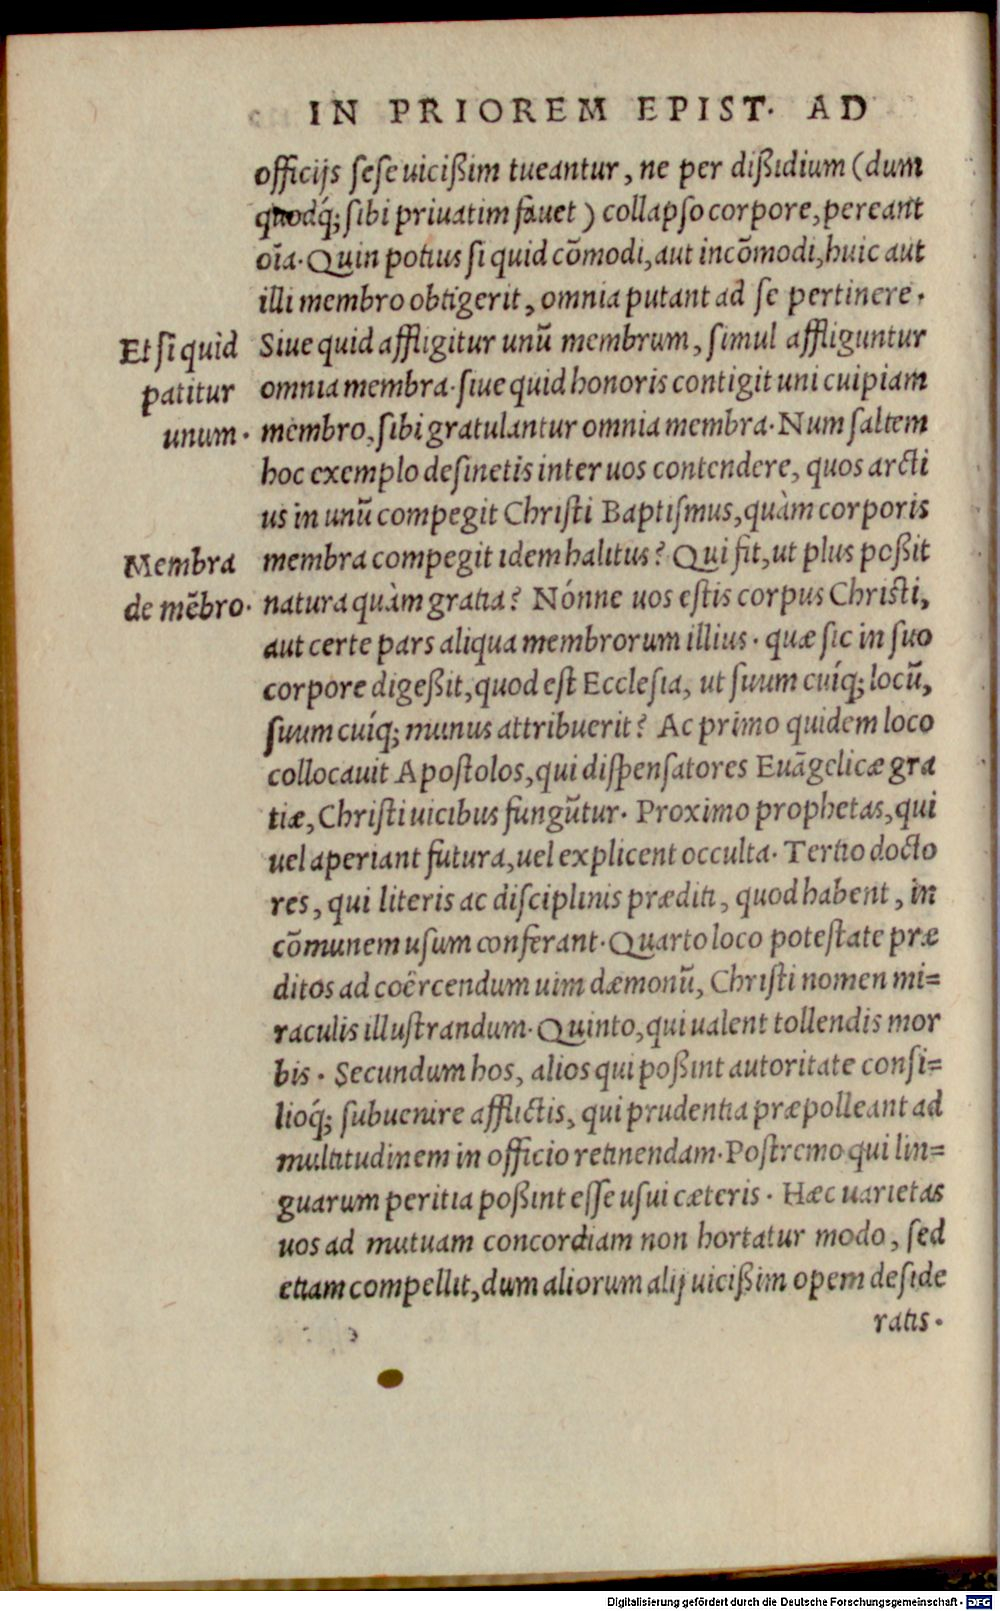 IN PRIOREM EPIST. AD
officijs ſeſe uicißim tueantur, ne per dißidium (dum
quodq́; ſibi priuatim fauet) collapſo corpore, pereant
oīa. Quin potius ſi quid cōmodi, aut incōmodi, huic aut
illi membro obtigerit, omnia putant ad ſe pertinere.
Et ſi quid
patitur
unum.
Siue quid affligitur unū membrum, ſimul affliguntur
omnia membra. ſiue quid honoris contigit uni cuipiam
membro, ſibi gratulantur omnia membra. Num ſaltem
hoc exemplo deſinetis inter uos contendere, quos arcti
us in unū compegit Chriſti Baptiſmus, quàm corporis
Membra
de mēbro.
membra compegit idem halitus? Qui fit, ut plus poßit
natura quàm gratia? Nónne uos eſtis corpus Chriſti,
aut certe pars aliqua membrorum illius. quæ ſic in ſuo
corpore digeßit, quod eſt Eccleſia, ut ſuum cuíq; locū,
ſuum cuíq; munus attribuerit? Ac primo quidem loco
collocauit Apoſtolos, qui diſpenſatores Euāgelicæ gra
tiæ, Chriſti uicibus fungūtur. Proximo prophetas, qui
uel aperiant futura, uel explicent occulta. Tertio docto
res, qui literis ac diſciplinis præditi, quod habent, in
cōmunem uſum conferant. Quarto loco poteſtate præ
ditos ad coërcendum uim dæmonū, Chriſti nomen mi=
raculis illuſtrandum. Quinto, qui ualent tollendis mor
bis. Secundum hos, alios qui poßint autoritate conſi=
lioq́; ſubuenire afflictis, qui prudentia præpolleant ad
multitudinem in officio retinendam. Poſtremo qui lin=
guarum peritia poßint eſſe uſui cæteris. Hæc uarietas
uos ad mutuam concordiam non hortatur modo, ſed
etiam compellit, dum aliorum alij uicißim opem deſide
ratis.
Digitalisierung gefördert durch die Deutsche Forschungsgemeinschaft - DFG